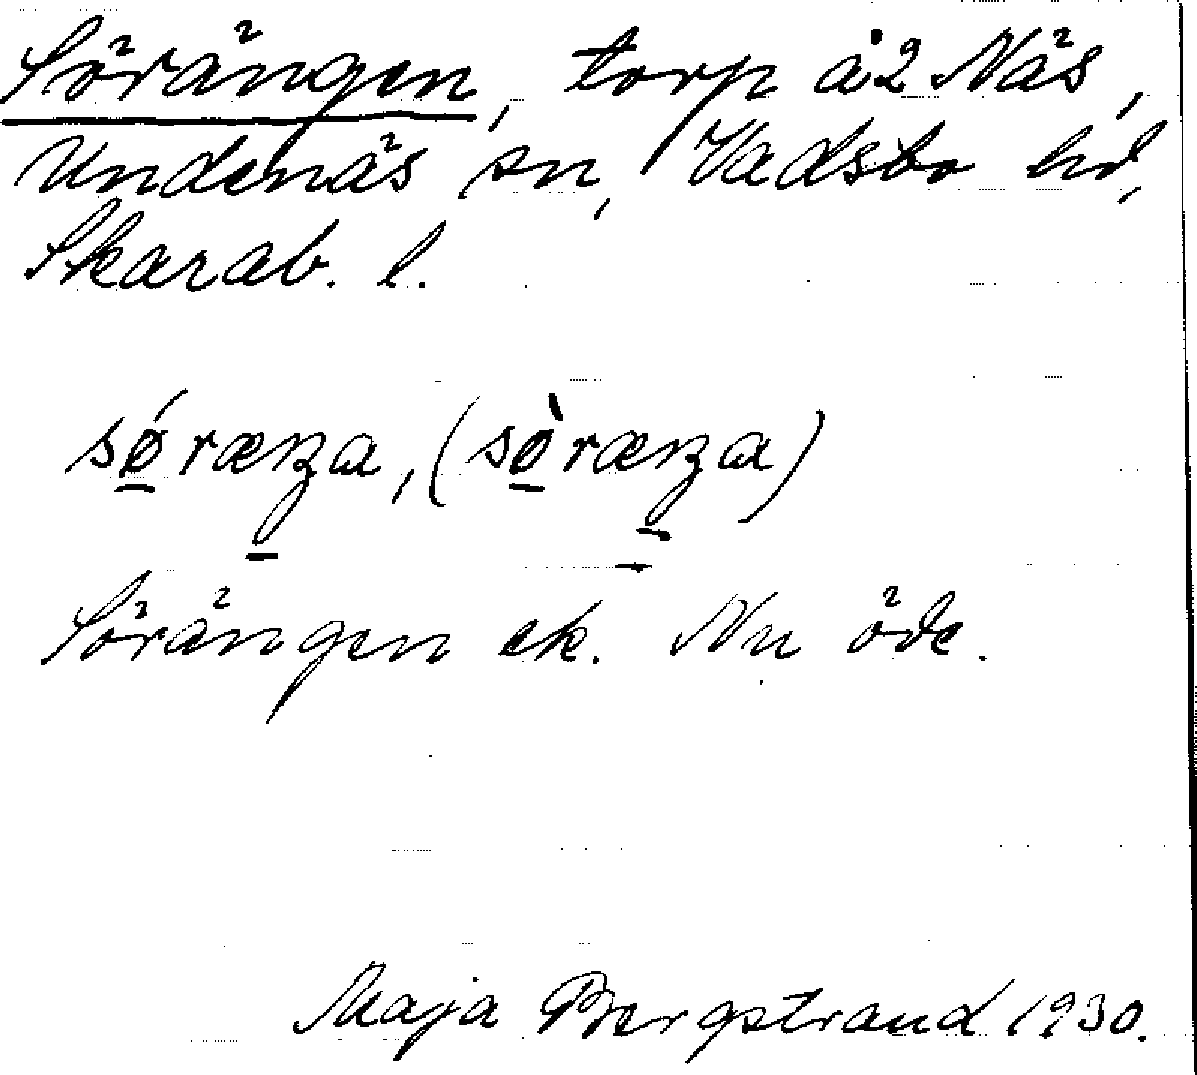 Sörängen, torp å 2 Näs,
Undenäs sn, Vadsbo hd,
Skarab. l.
sǿræŋa, (sø̀ræŋa)
Sörängen ek. Nu öde.
Maja Bergstrand 1930.